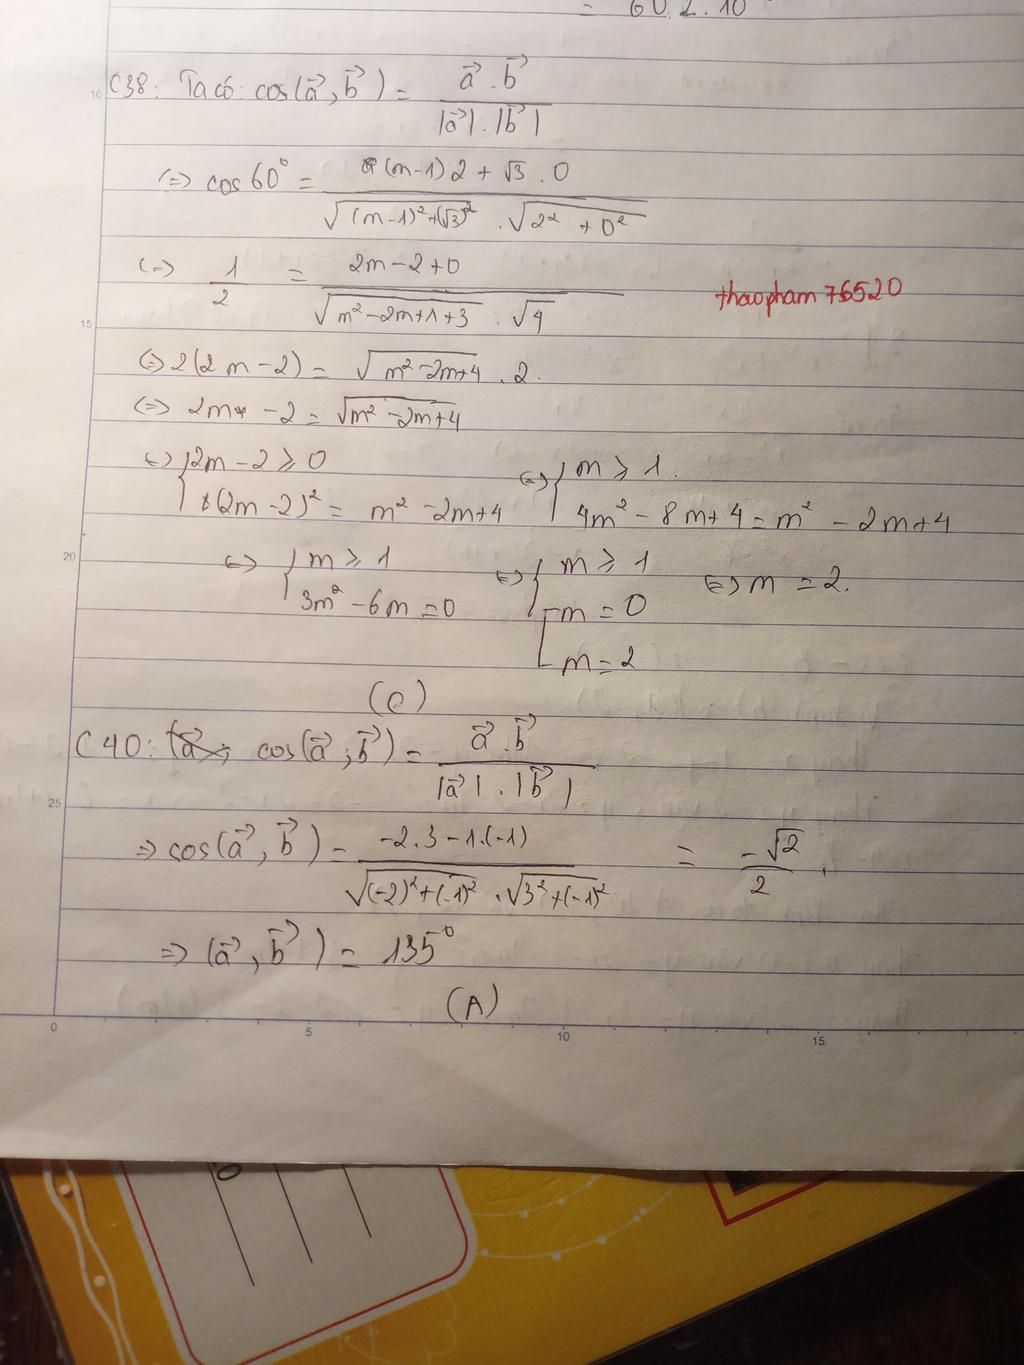 = 60.2.10
C38: Ta có: cos(a⃗, b⃗) = a⃗ . b⃗ / |a⃗| . |b⃗|
(=) cos 60° = (m-1)2 + √3 . 0 / √((m-1)² + (√3)²) . √(2² + 0²)
(=) 1/2 = 2m - 2 + 0 / √(m² - 2m + 1 + 3) . √4
thaopham76520
(=) 2(2m - 2) = √(m² - 2m + 4) . 2.
(=) 2m - 2 = √(m² - 2m + 4)
(=) { 2m - 2 ⩾ 0
(2m - 2)² = m² - 2m + 4
(=) { m ⩾ 1.
4m² - 8m + 4 = m² - 2m + 4
(=) { m ⩾ 1
3m² - 6m = 0
(=) { m ⩾ 1
[ m = 0
m = 2
(=) m = 2.
(C)
C40: cos(a⃗, b⃗) = a⃗ . b⃗ / |a⃗| . |b⃗|
=> cos(a⃗, b⃗) = -2.3 - 1.(-1) / √((-2)² + (-1)²) . √(3² + (-1)²) = -√2 / 2.
=> (a⃗, b⃗) = 135°
(A)
10
15
20
25
0 5 10 15